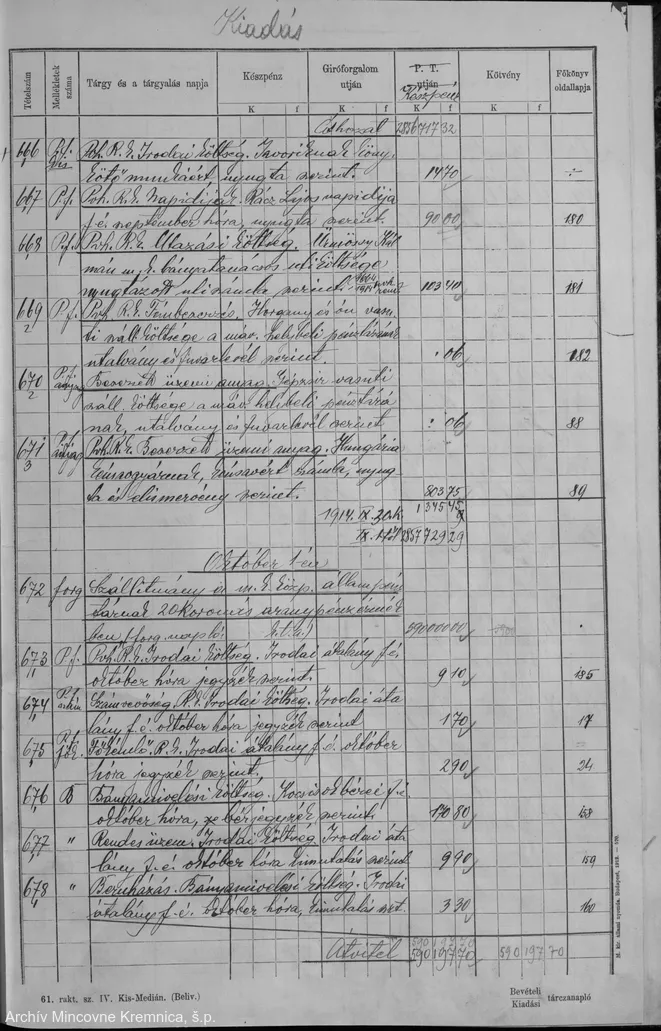 Kiadás
Tételszám Mellékletek száma Tárgy és a tárgyalás napja Készpénz Giróforgalom utján P. T. utján Készpénz Kötvény Főkönyv oldallapja
K f K f K f K f
Áthozat 2856717 32
666 P.f. Pvh. R. É. Irodai költség.
kötő munkáért, nyugta szerint. 14 70
667 P.f. Pvh. R. É. Napidíjak. Rácz Lajos napidíja
f. é. szeptember hóra, nyugta szerint. 90 00 180
668 P.f. Pvh. R. É. Utazási költség. Ürmössy Kál-
mán m. k. bányatanácsos uti költsége
nyugtázott uti számla szerint. 103 40 181
669 P.f. Pvh. R. É. Horgany és ón vasu-
ti száll. költsége a máv. helybeli pénztárának
utalvány és fuvarlevél szerint. : 06 182
670 P.f. anyag Beszerzett üzemi anyag. Gépzsír vasuti
száll. költsége a máv. helibeli pénztárá-
nak, utalvány és fuvarlevél szerint : 06 88
671 anyag Pvh. R. É. Beszerzett üzemi anyag. Hungária
számla, nyug-
ta és elismervény szerint. 803 75 89
1914. IX. 30. 1345 45
2857729 29
Október 1-én
672 forg Szállitmány a m. k. közp. állampénz-
tárnak 20 koronás aranypénzérmék-
ben (forg. napló 590000 00
673 P.f. Pvh. R. É. Irodai költség. Irodai átalány f. é.
október hóra jegyzék szerint. 9 10 185
674 Számvevőség R. É. Irodai költség. Irodai áta-
lány f. é. október hóra jegyzék szerint 1 70 17
675 Főkémlő R. É. Irodai átalány f. é. október
hóra jegyzék szerint. 2 90 24
676 B Bányamivelési költség. Kocsis bérei f. é.
október hóra, bérjegyzék szerint. 170 80 158
677 " Rendes üzem. Irodai költség. Irodai áta-
lány f. é. október hóra kimutatás szerint 9 90 159
678 " Beruházás. Bányamivelési költség. Irodai
átalány f. é. október hóra, kimutatás szt. 3 30 160
Átvitel 590197 70 590197 70
61. rakt. sz. IV. Kis-Medián. (Beliv.)
Bevételi
Kiadási tárczanapló
M. kir. állami nyomda. Budapest, 1912.
Archív Mincovne Kremnica, š.p.